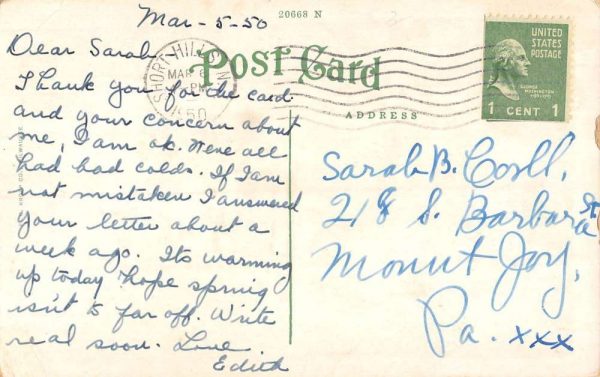 Mar-5-50
20668 N
Dear Sarah
Thank you for the card
and your concern about
me, I am ok. Weve all
had bad colds. If I am
not mistaken I answered
your letter about a
week ago. Its warming
up today hope spring
isn't to far off. Write
real soon. Love
Edith
Post Card
ADDRESS
SHORT HILLS N.
MAR 6
PM
1950
UNITED
STATES
POSTAGE
GEORGE
WASHINGTON
1 CENT 1
Sarah B.
218 S. Barbara St.
Mount Joy,
Pa. xxx